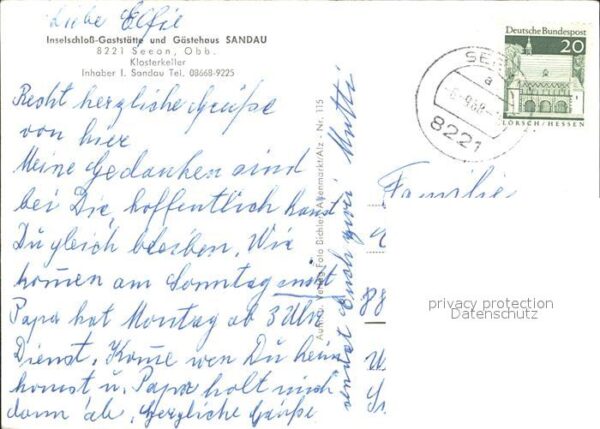 Liebe Elfie
Inselschloß-Gaststätte und Gästehaus SANDAU
8221 Seeon, Obb.
Klosterkeller
Inhaber I. Sandau Tel. 08668-9225
Recht herzliche Grüße
von hier
Meine Gedanken sind
bei Dir, hoffentlich kanst
Du gleich bleiben. Wir
kom̄en am Sonntag nicht
Papa hat Montag ab 3 Uhr
Dienst. Kom̄e wen Du heim
komst u. Papa holt mich
dann ab. Herzliche Grüße
sendet Euch zwei Mutti
Foto Dichler, Altenmarkt/Alz - Nr. 115
Deutsche Bundespost
20
LORSCH/HESSEN
a
8221
Familie
88
privacy protection
Datenschutz